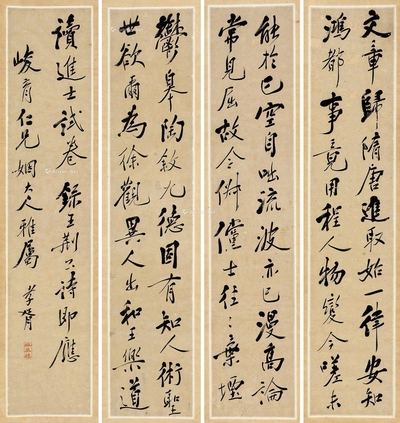 文章歸隋唐進取始一律安知
鴻都事竟用程人物變今嗟未
能於己空自咄流波亦已漫高論
常見屈故令俶儻士往〻棄堙
鬱皋陶敘九德固有知人術聖
世欲爾為徐觀異人出和王樂道
讀進士試卷錄王荊公詩即應
峻育仁兄姻大人雅屬 孝胥